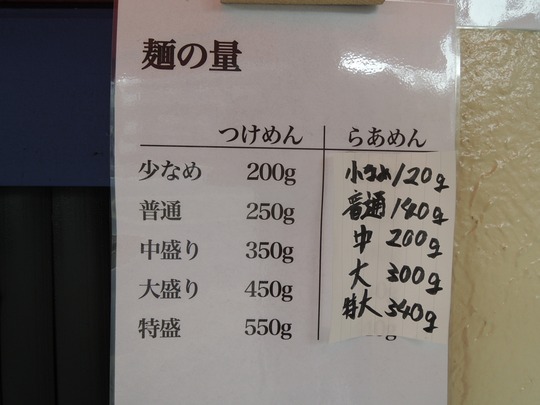 麺の量
つけめん らあめん
少なめ 200g 小なめ 120g
普通 250g 普通 140g
中盛り 350g 中 200g
大盛り 450g 大 300g
特盛 550g 特大 340g